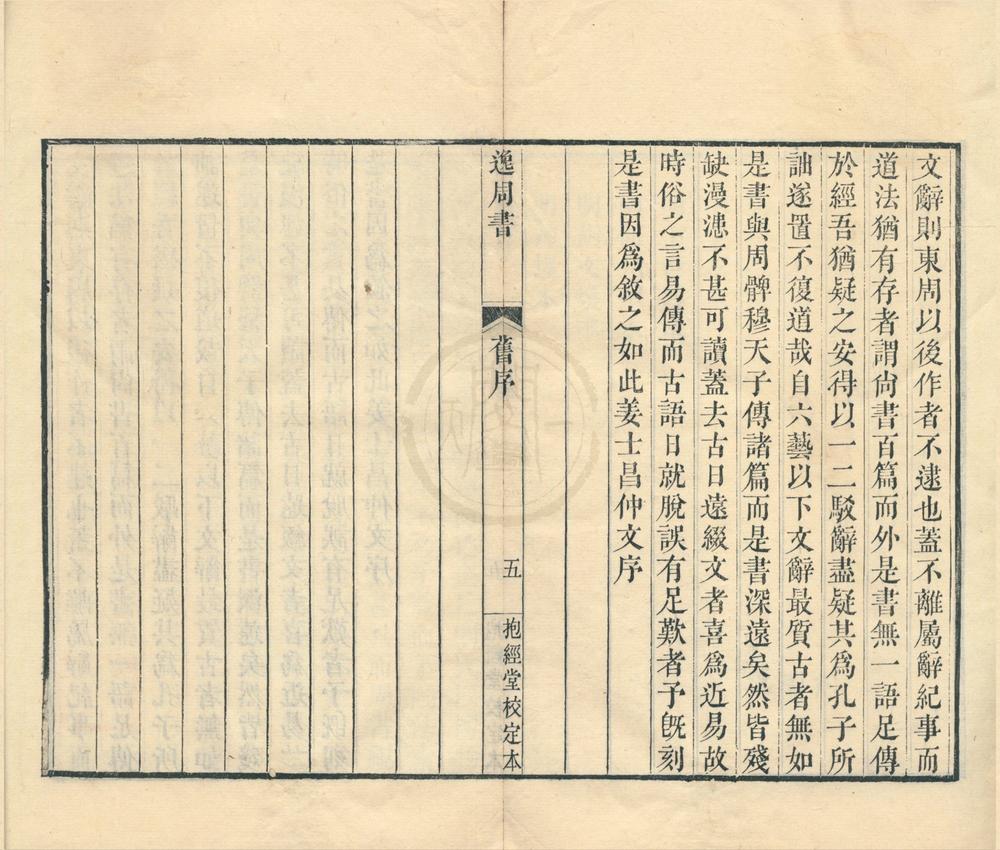 文辭則東周以後作者不逮也蓋不離屬辭紀事而
道法猶有存者謂尙書百篇而外是書無一語足傳
於經吾猶疑之安得以一二駁辭盡疑其爲孔子所
詘遂置不復道哉自六藝以下文辭最質古者無如
是書與周髀穆天子傳諸篇而是書深遠矣然皆殘
缺漫漶不甚可讀蓋去古日遠綴文者喜爲近易故
時俗之言易傳而古語日就脫誤有足歎者予旣刻
是書因爲敘之如此姜士昌仲文序
逸周書
舊序
五
抱經堂校定本